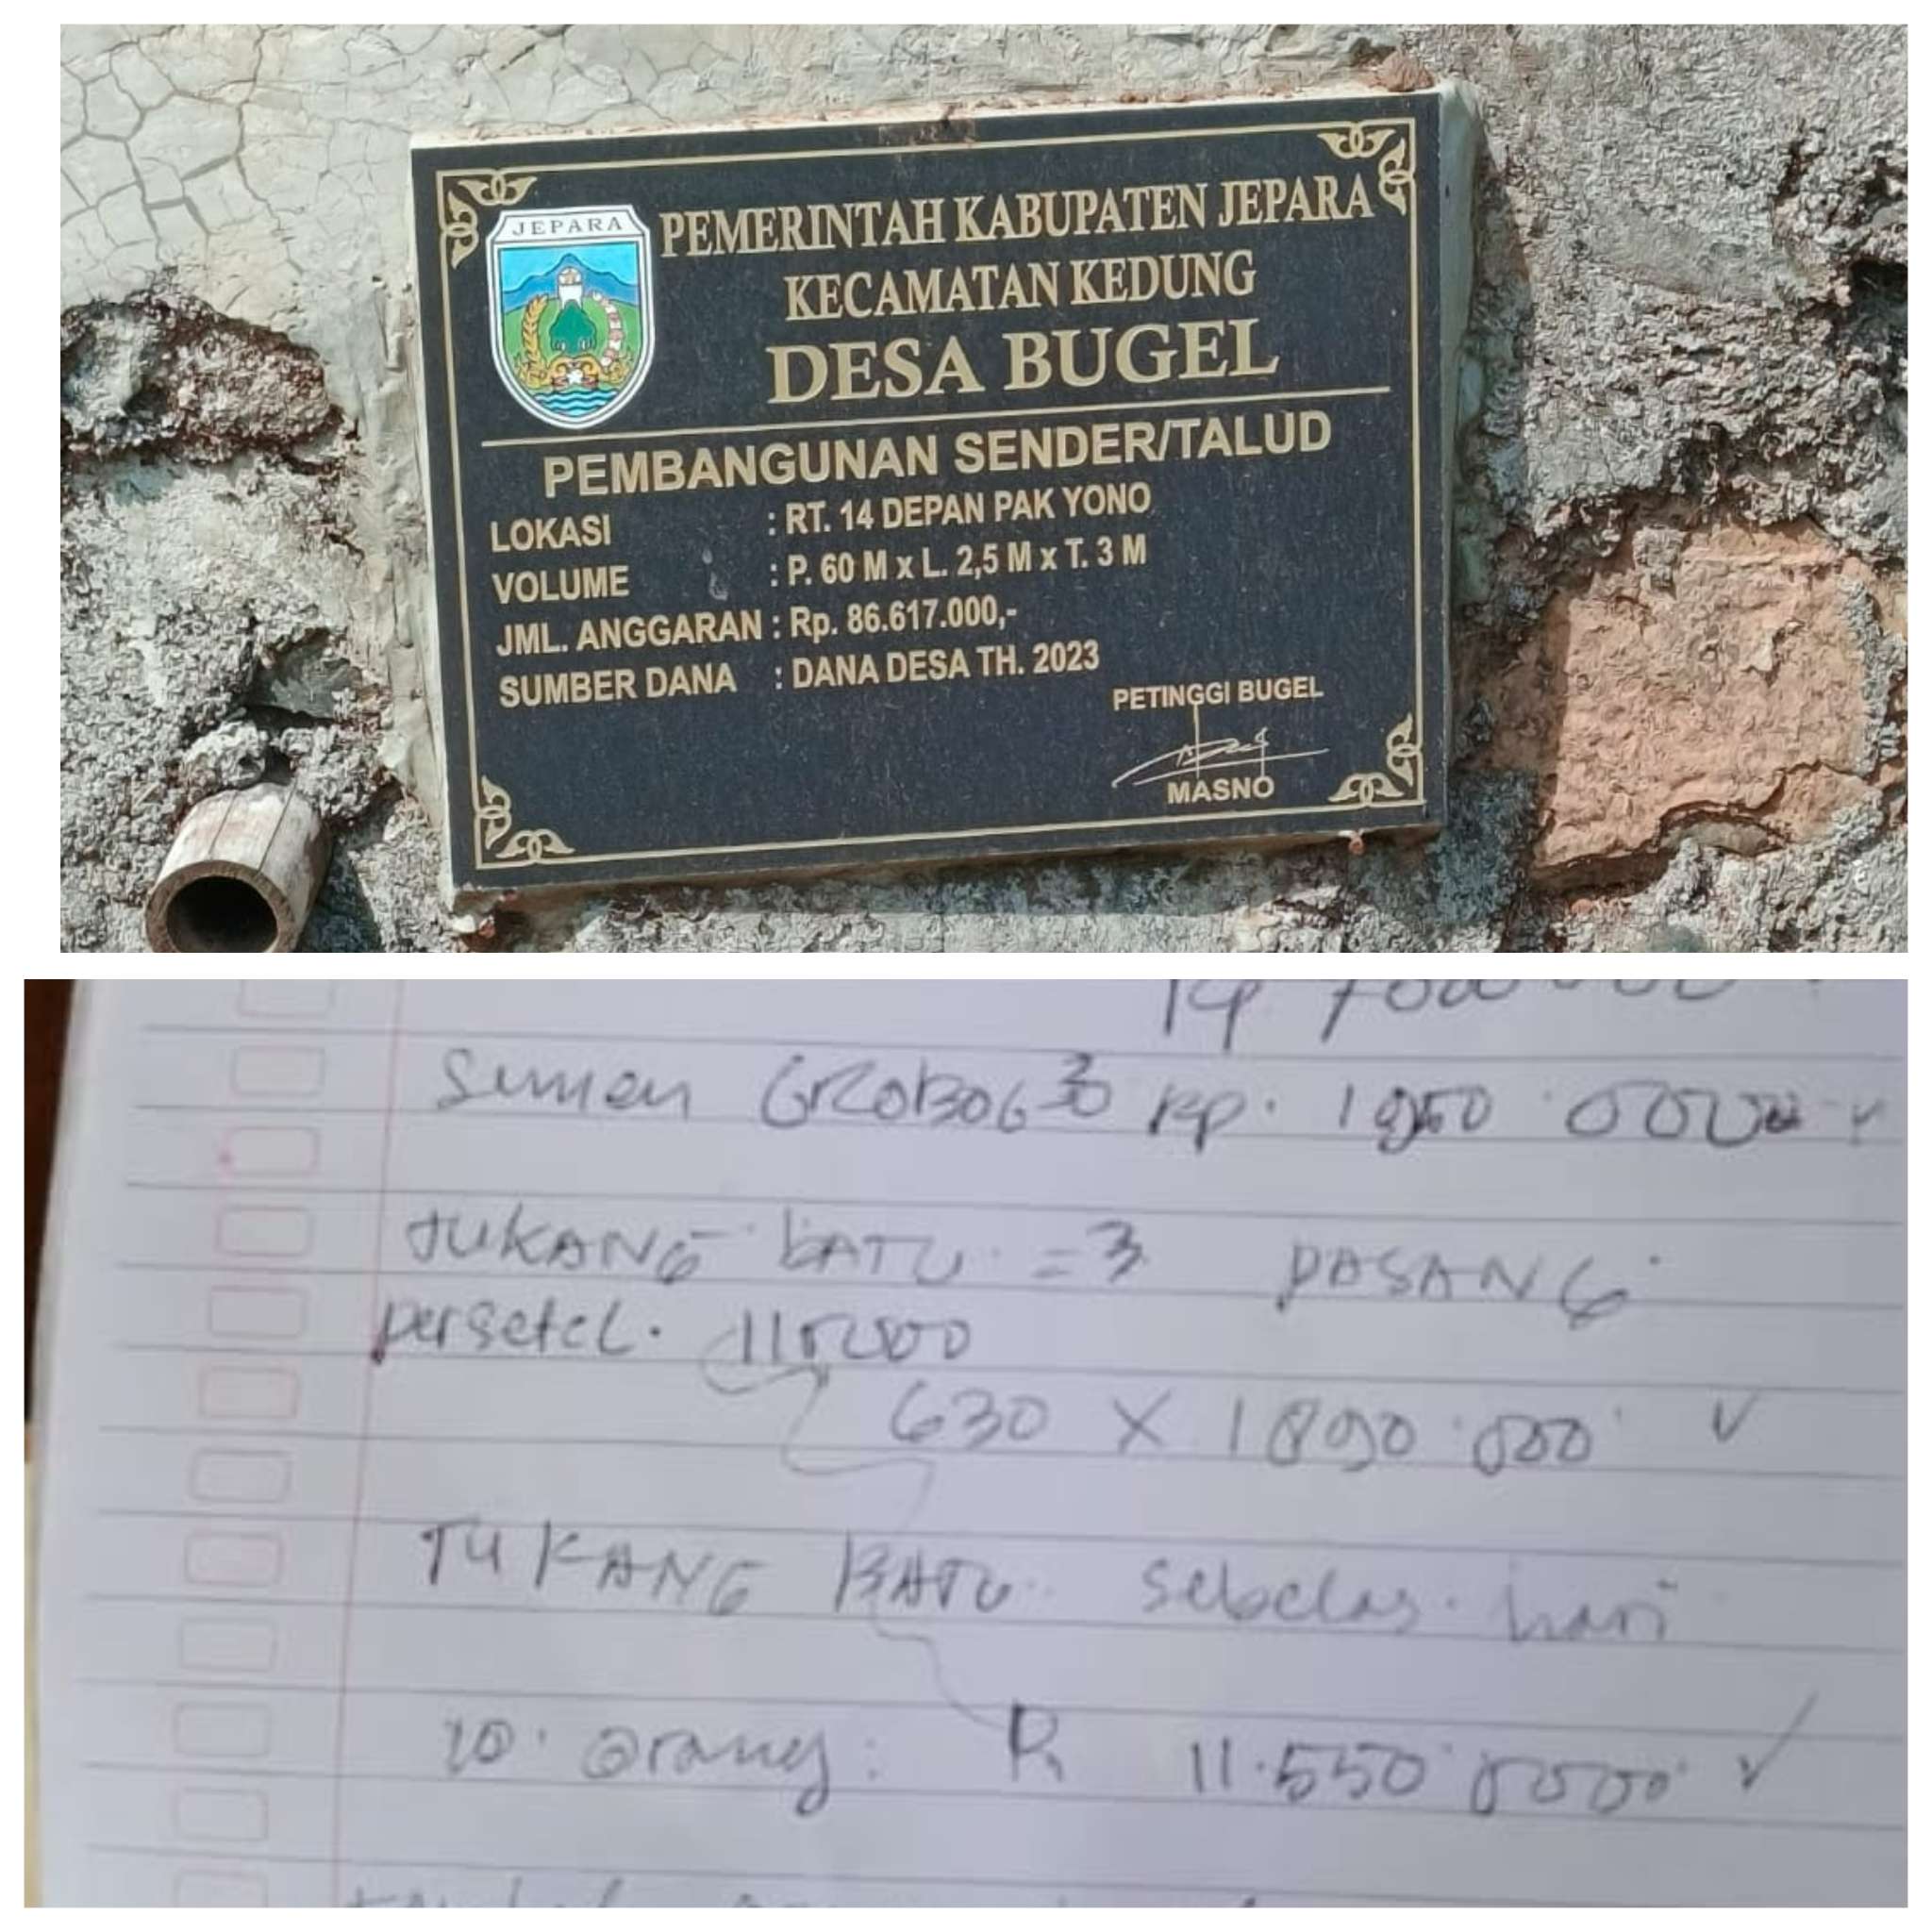 JEPARA
PEMERINTAH KABUPATEN JEPARA
KECAMATAN KEDUNG
DESA BUGEL
PEMBANGUNAN SENDER/TALUD
LOKASI : RT. 14 DEPAN PAK YONO
VOLUME : P. 60 M x L. 2,5 M x T. 3 M
JML. ANGGARAN : Rp. 86.617.000,-
SUMBER DANA : DANA DESA TH. 2023
PETINGGI BUGEL
MASNO
Semen GROBOG Rp.
TUKANG BATU = 3 PASANG
persetel. 115000
630 X 1890.000
TUKANG BATU sebelas hari
10. orang: 11.550